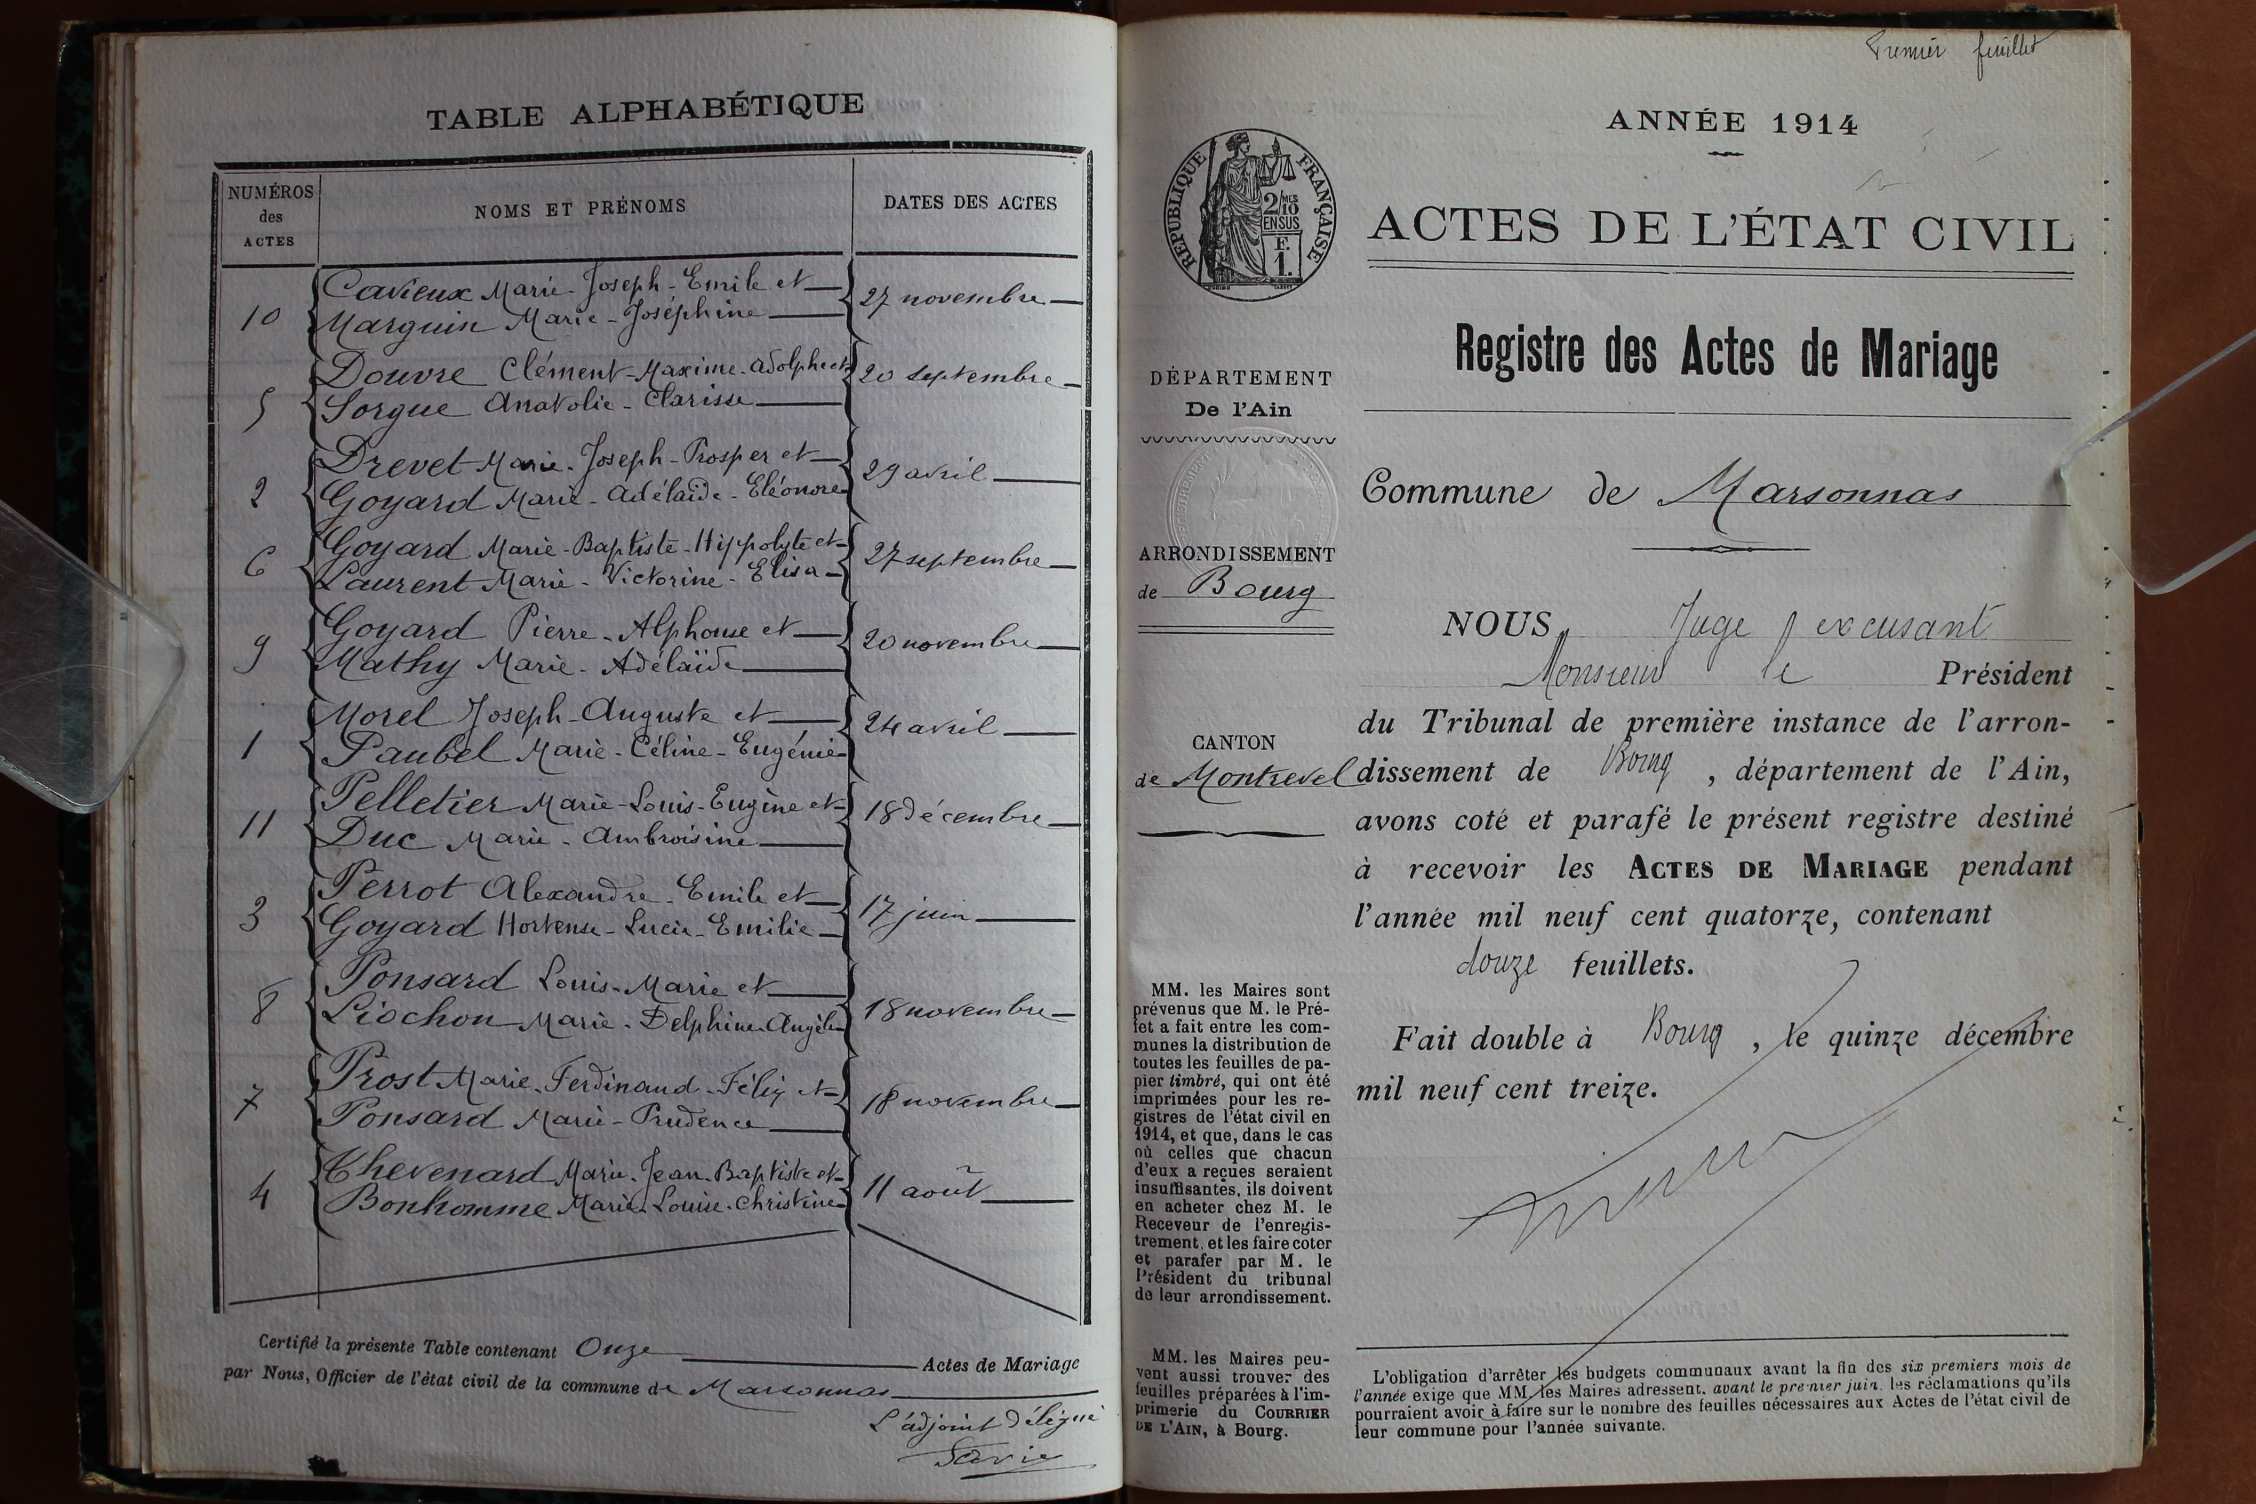 TABLE ALPHABÉTIQUE
NUMÉROS des ACTES
NOMS ET PRÉNOMS
DATES DES ACTES
10
Cavieux Marie-Joseph-Emile et
Marguin Marie-Joséphine
27 novembre
5
Douvre Clément-Maxime-Adolphe et
Sorgue Anatolie-Clarisse
20 septembre
2
Drevet Marie-Joseph-Prosper et
Goyard Marie-Adélaïde-Eléonore
29 avril
6
Goyard Marie-Baptiste-Hippolyte et
Laurent Marie-Victorine-Elisa
27 septembre
9
Goyard Pierre-Alphonse et
Mathy Marie-Adélaïde
20 novembre
1
Morel Joseph-Auguste et
Paubel Marie-Céline-Eugénie
24 avril
11
Pelletier Marie-Louis-Eugène et
Duc Marie-Ambroisine
18 décembre
3
Perrot Alexandre-Emile et
Goyard Hortense-Lucie-Emilie
17 juin
8
Ponsard Louis-Marie et
Liochon Marie-Delphine-Angèle
18 novembre
7
Prost Marie-Ferdinand-Félix et
Ponsard Marie-Prudence
18 novembre
4
Chevenard Marie-Jean-Baptiste et
Bonhomme Marie-Louise-Christine
11 août
Certifié la présente Table contenant Onze Actes de Mariage
par Nous, Officier de l'état civil de la commune de Marsonnas
L'adjoint délégué
Premier feuillet
ANNÉE 1914
RÉPUBLIQUE FRANÇAISE
2/10 MES
EN SUS
F.
1.
ACTES DE L'ÉTAT CIVIL
Registre des Actes de Mariage
DÉPARTEMENT
De l'Ain
ARRONDISSEMENT
de Bourg
CANTON
de Montrevel
MM. les Maires sont
prévenus que M. le Pré-
fet a fait entre les com-
munes la distribution de
toutes les feuilles de pa-
pier timbré, qui ont été
imprimées pour les re-
gistres de l'état civil en
1914, et que, dans le cas
où celles que chacun
d'eux a reçues seraient
insuffisantes, ils doivent
en acheter chez M. le
Receveur de l'enregis-
trement, et les faire coter
et parafer par M. le
Président du tribunal
de leur arrondissement.
MM. les Maires peu-
vent aussi trouver des
feuilles préparées à l'im-
primerie du COURRIER
DE L'AIN, à Bourg.
Commune de Marsonnas
NOUS Juge excusant
Monsieur le Président
du Tribunal de première instance de l'arron-
dissement de Bourg, département de l'Ain,
avons coté et parafé le présent registre destiné
à recevoir les ACTES DE MARIAGE pendant
l'année mil neuf cent quatorze, contenant
douze feuillets.
Fait double à Bourg, le quinze décembre
mil neuf cent treize.
L'obligation d'arrêter les budgets communaux avant la fin des six premiers mois de
l'année exige que MM. les Maires adressent, avant le premier juin, les réclamations qu'ils
pourraient avoir à faire sur le nombre des feuilles nécessaires aux Actes de l'état civil de
leur commune pour l'année suivante.